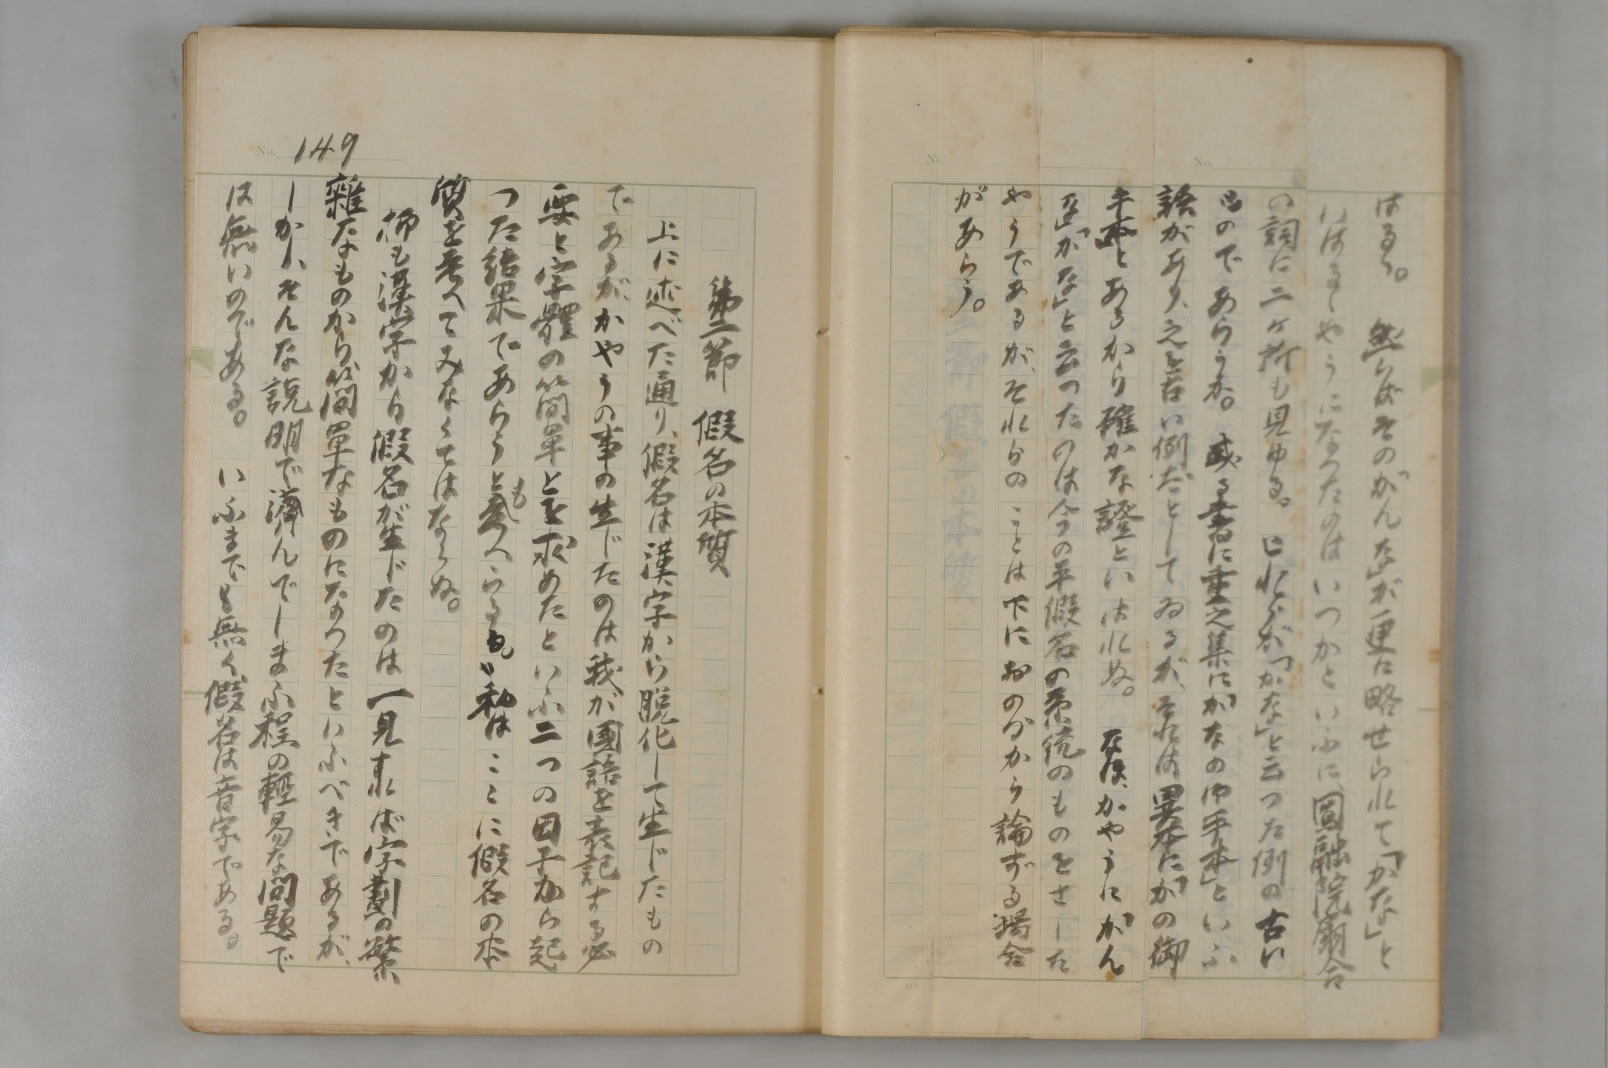 はる。 然らばその「かんな」が更に略せられて「かな」と
いはるゝやうになつたのはいつかといふに、圓融院扇合
の詞に二ヶ所も見ゆる。 これらが「かな」と云つた例の古い
ものであらうか。 或る書に重之集に「かなの御手本」といふ
語があり、之を古い例だとしてゐるが、それは異本に「かの御
手本」とあるから確かな證といはれぬ。 なほ、かやうに「かん
な」「かな」と云つたのは今の平假名の系統のものをさした
やうであるが、それらのことは下におのづから論ずる場合
があらう。
149
第二節 假名の本質
上に述べた通り、假名は漢字から脱化して生じたもの
であるが、かやうの事の生じたのは我が國語を表記する必
要と字體の簡單とを求めたといふ二つの因子から起
つた結果であらうとも考へらるゝが、私はここに假名の本
質を考へてみなくてはならぬ。
抑も漢字から假名が生じたのは一見すれば字劃の繁
雜なものから簡單なものになつたといふべきであるが、
しかし、そんな説明で濟んでしまふ程の輕易な問題で
は無いのである。 いふまでも無く假名は音字である。